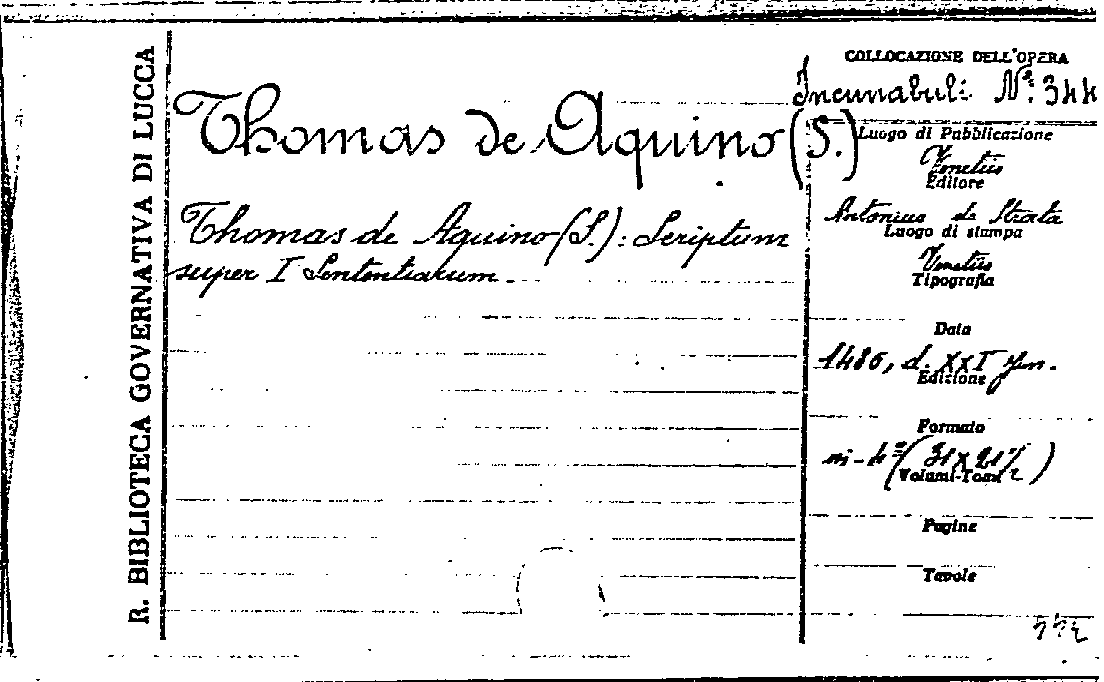 R. BIBLIOTECA GOVERNATIVA DI LUCCA
Thomas de Aquino (S.)
Thomas de Aquino (S.): Scriptum
super I Sententiarum.
COLLOCAZIONE DELL'OPERA
Incunabuli N.º 344
Luogo di Pubblicazione
Venetiis
Editore
Antonius de Strata
Luogo di stampa
Venetiis
Tipografia
Data
1486, d. XXI Jan.
Edizione
Formato
in-4º (31 x 21½)
Volumi-Tomi
Pagine
Tavole